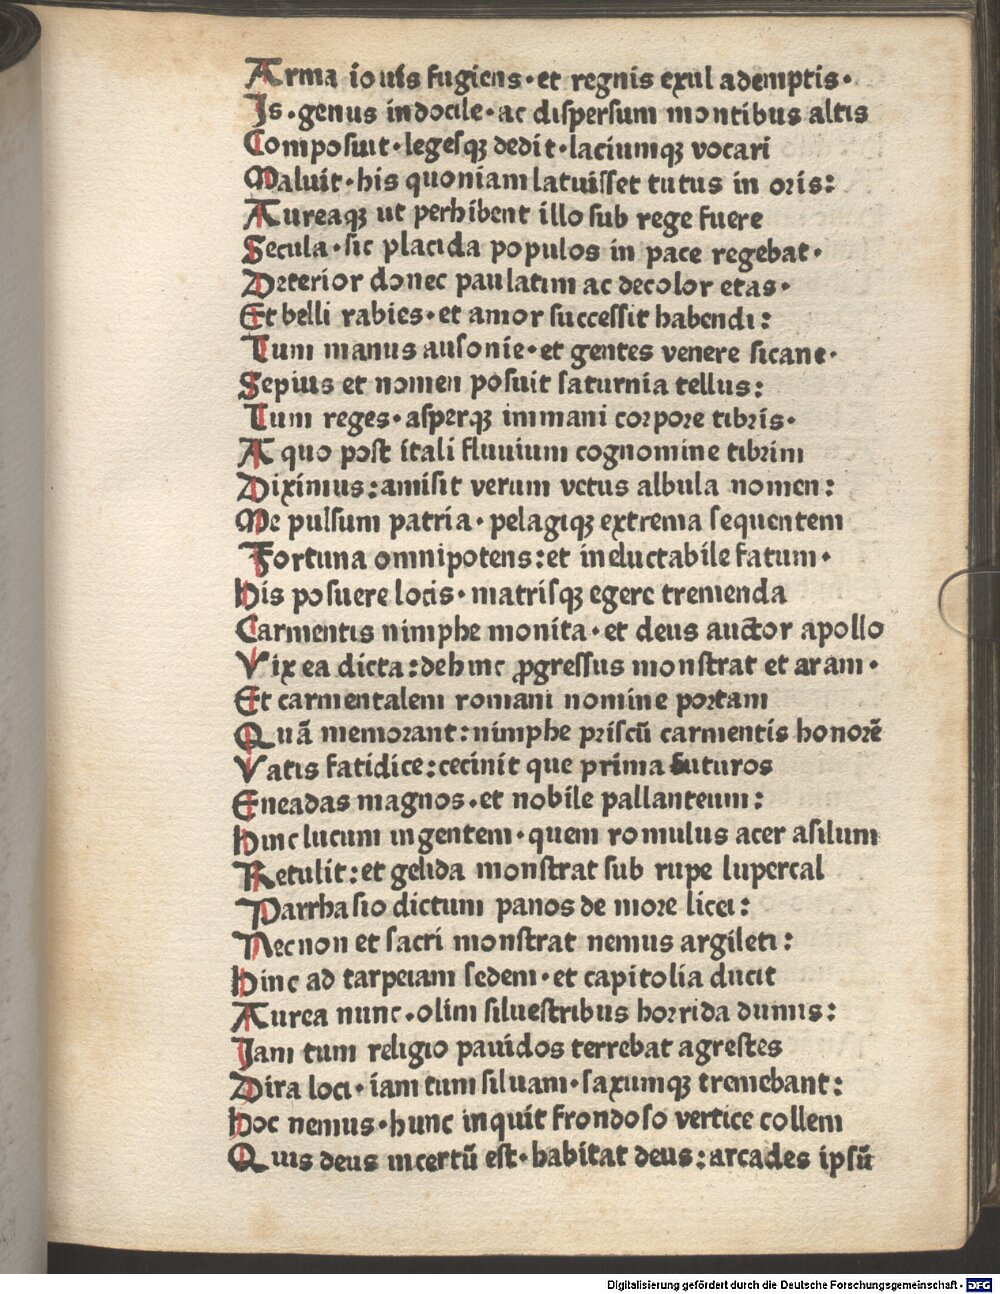 Arma iouis fugiens·et regnis exul ademptis·
Is·genus indocile·ac dispersum montibus altis
Composuit·legesqꝫ dedit·laciumqꝫ vocari
Maluit·his quoniam latuisset tutus in oris:
Aureaqꝫ ut perhibent illo sub rege fuere
Secula·sic placida populos in pace regebat·
Deterior donec paulatim ac decolor etas·
Et belli rabies·et amor successit habendi:
Tum manus ausonie·et gentes venere sicane·
Sepius et nomen posuit saturnia tellus:
Tum reges·asperqꝫ immani corpore tibris·
A quo post itali fluuium cognomine tibrim
Diximus:amisit verum vetus albula nomen:
Me pulsum patria·pelagiqꝫ extrema sequentem
Fortuna omnipotens:et ineluctabile fatum·
His posuere locis·matrisqꝫ egere tremenda
Carmentis nimphe monita·et deus auctor apollo
Vix ea dicta:dehinc ꝓgressus monstrat et aram·
Et carmentalem romani nomine portam
Quā memorant:nimphe priscū carmentis honorē
Vatis fatidice:cecinit que prima futuros
Eneadas magnos·et nobile pallanteum:
Hinc lucum ingentem·quem romulus acer asilum
Retulit:et gelida monstrat sub rupe lupercal
Parrhasio dictum panos de more licei:
Necnon et sacri monstrat nemus argileti:
Hinc ad tarpeiam sedem·et capitolia ducit
Aurea nunc·olim siluestribus horrida dumis:
Iam tum religio pauidos terrebat agrestes
Dira loci·iam tum siluam·saxumqꝫ tremebant:
Hoc nemus·hunc inquit frondoso vertice collem
Quis deus incertū est·habitat deus:arcades ipsū
Digitalisierung gefördert durch die Deutsche Forschungsgemeinschaft - DFG